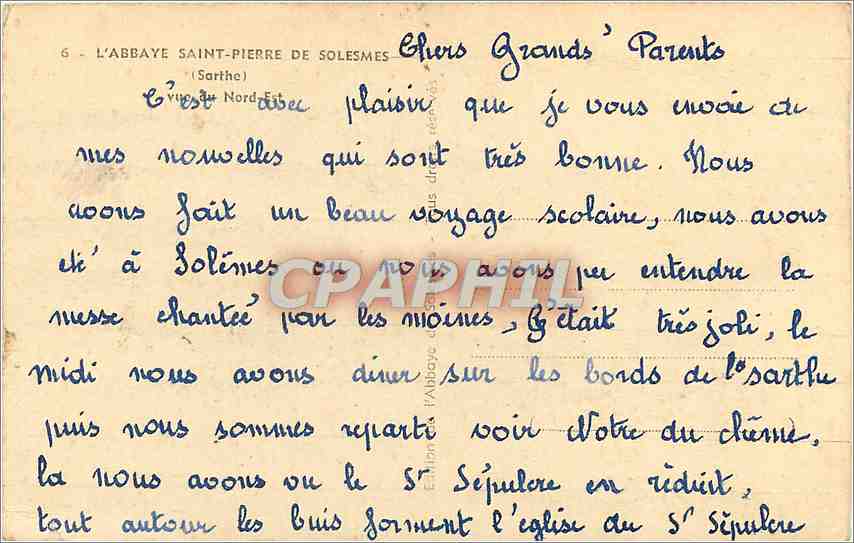 6 - L'ABBAYE SAINT-PIERRE DE SOLESMES
(Sarthe)
vue du Nord-Est
Chers Grands' Parents
C'est avec plaisir que je vous envoie de
mes nouvelles qui sont très bonne. Nous
avons fait un beau voyage scolaire, nous avons
eté à Solêmes ou nous avons pu entendre la
messe chantée par les moines, C'était très joli, le
midi nous avons diner sur les bords de la sarthe
puis nous sommes reparti voir Notre du chême,
la nous avons vu le St Sépulcre en réduit,
tout autour les buis forment l'eglise du St Sépulcre
Edition de l'Abbaye de Solesmes - Tous droits réservés
CPAPHIL